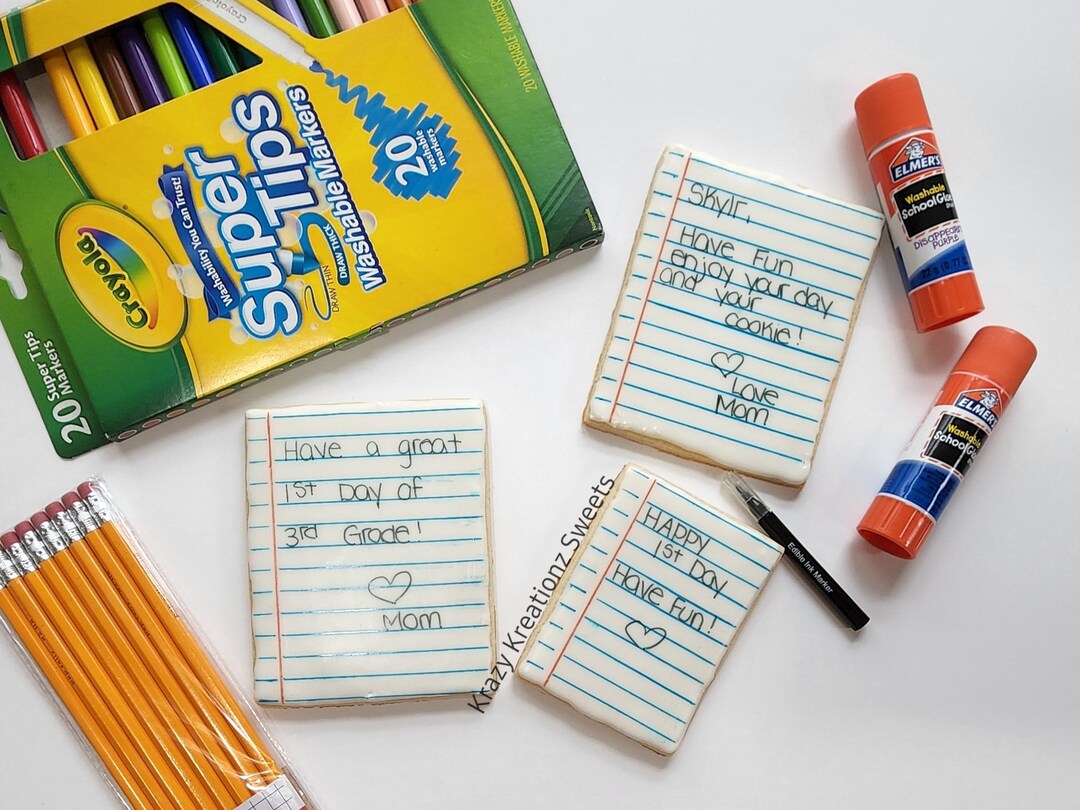 Crayola
20 WASHABLE MARKERS
Crayola
Washability You Can Trust!
Super
Tips
Washable Markers
DRAW THIN
DRAW THICK
20
washable
markers
20 Super Tips
Markers
Skylr,
Have Fun
enjoy your day
and your
cookie!
Love
Mom
ELMER'S
Washable
School Glue
DISAPPEARING
PURPLE
ELMER'S
Washable
School Glue
Have a great
1st Day of
3rd Grade!
Mom
Krazy Kreationz Sweets
HAPPY
1st Day
Have Fun!
Edible Ink Marker